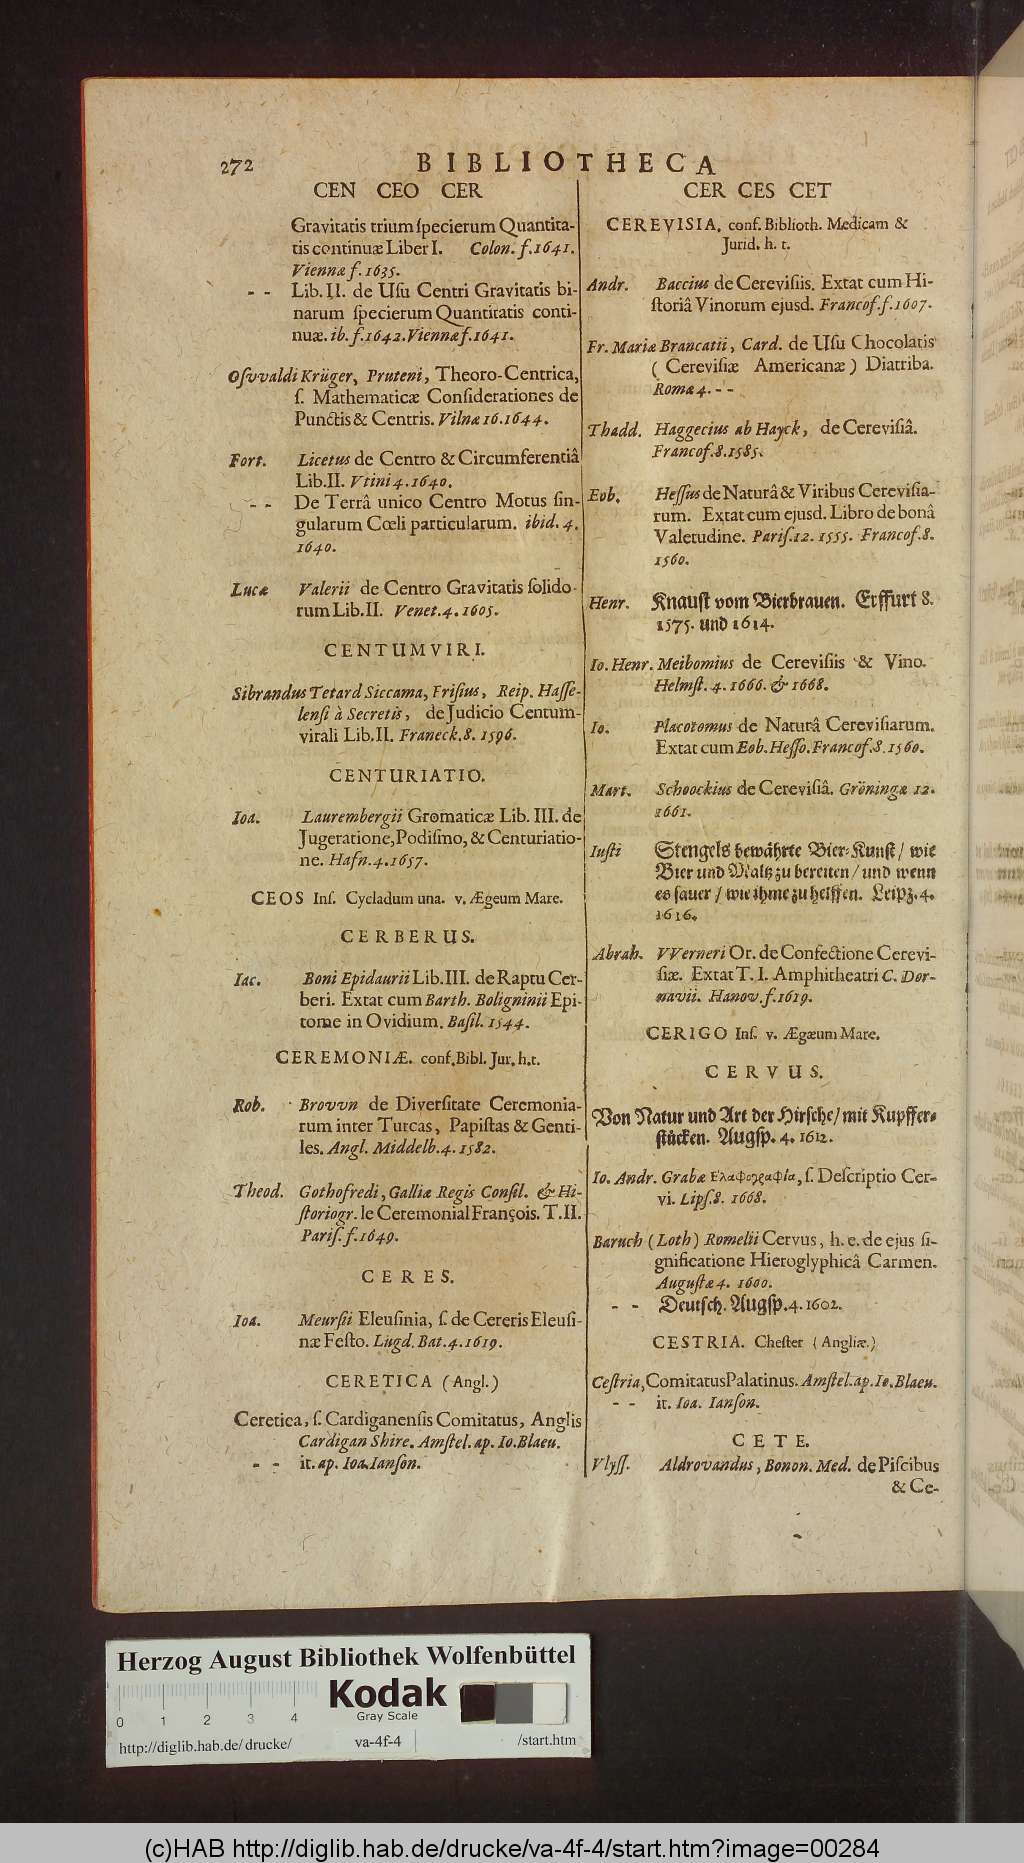 272
BIBLIOTHECA
CEN CEO CER
Gravitatis trium ſpecierum Quantita-
tis continuæ Liber I. Colon. f. 1641.
Viennæ f. 1635.
- - Lib. II. de Uſu Centri Gravitatis bi-
narum ſpecierum Quantitatis conti-
nuæ. ib. f. 1642. Viennæ f. 1641.
Oſvvaldi Krüger, Pruteni, Theoro-Centrica,
ſ. Mathematicæ Conſiderationes de
Punctis & Centris. Vilnæ 16. 1644.
Fort. Licetus de Centro & Circumferentiâ
Lib. II. Vtini 4. 1640.
- - De Terrâ unico Centro Motus ſin-
gularum Cœli particularum. ibid. 4.
1640.
Lucæ Valerii de Centro Gravitatis ſolido-
rum Lib. II. Venet. 4. 1605.
CENTUMVIRI.
Sibrandus Tetard Siccama, Friſius, Reip. Haſſe-
lenſi à Secretis, de Judicio Centum-
virali Lib. II. Franeck. 8. 1596.
CENTURIATIO.
Ioa. Laurembergii Gromaticæ Lib. III. de
Jugeratione, Podiſmo, & Centuriatio-
ne. Hafn. 4. 1657.
CEOS Inſ. Cycladum una. v. Ægeum Mare.
CERBERUS.
Iac. Boni Epidaurii Lib. III. de Raptu Cer-
beri. Extat cum Barth. Boligninii Epi-
tome in Ovidium. Baſil. 1544.
CEREMONIÆ. conf. Bibl. Jur. h. t.
Rob. Brovvn de Diverſitate Ceremonia-
rum inter Turcas, Papiſtas & Genti-
les. Angl. Middelb. 4. 1582.
Theod. Gothofredi, Galliæ Regis Conſil. & Hi-
ſtoriogr. le Ceremonial François. T. II.
Pariſ. f. 1649.
CERES.
Ioa. Meurſii Eleuſinia, ſ. de Cereris Eleuſi-
næ Feſto. Lugd. Bat. 4. 1619.
CERETICA (Angl.)
Ceretica, ſ. Cardiganenſis Comitatus, Anglis
Cardigan Shire. Amſtel. ap. Io. Blaeu.
- - it. ap. Ioa. Ianſon.
CER CES CET
CEREVISIA. conf. Biblioth. Medicam &
Jurid. h. t.
Andr. Baccius de Cereviſiis. Extat cum Hi-
ſtoriâ Vinorum ejusd. Francof. f. 1607.
Fr. Mariæ Brancatii, Card. de Uſu Chocolatis
(Cereviſiæ Americanæ) Diatriba.
Romæ 4. - -
Thadd. Haggecius ab Hayck, de Cereviſiâ.
Francof. 8. 1585.
Eob. Heſſus de Naturâ & Viribus Cereviſia-
rum. Extat cum ejusd. Libro de bonâ
Valetudine. Pariſ. 12. 1555. Francof. 8.
1560.
Henr. Knauſt vom Bierbrauen. Erffurt 8.
1575. und 1614.
Io. Henr. Meibomius de Cereviſiis & Vino.
Helmſt. 4. 1666. & 1668.
Io. Placotomus de Naturâ Cereviſiarum.
Extat cum Eob. Heſſo. Francof. 8. 1560.
Mart. Schoockius de Cereviſiâ. Gröningæ 12.
1661.
Iuſti Stengels bewährte Bier-Kunſt / wie
Bier und Maltz zu bereiten / und wenn
es ſauer / wie ihme zu helffen. Leipz. 4.
1616.
Abrah. VVerneri Or. de Confectione Cerevi-
ſiæ. Extat T. I. Amphitheatri C. Dor-
navii. Hanov. f. 1619.
CERIGO Inſ. v. Ægæum Mare.
CERVUS.
Von Natur und Art der Hirſche / mit Kupffer-
ſtücken. Augſp. 4. 1612.
Io. Andr. Grabæ Ἐλαφογραφία, ſ. Deſcriptio Cer-
vi. Lipſ. 8. 1668.
Baruch (Loth) Romelii Cervus, h. e. de ejus ſi-
gnificatione Hieroglyphicâ Carmen.
Auguſtæ 4. 1600.
- - Deutſch. Augſp. 4. 1602.
CESTRIA. Cheſter (Angliæ.)
Ceſtria, Comitatus Palatinus. Amſtel. ap. Io. Blaeu.
- - it. Ioa. Ianſon.
CETE.
Vlyſſ. Aldrovandus, Bonon. Med. de Piſcibus
& Ce-
Herzog August Bibliothek Wolfenbüttel
Kodak
Gray Scale
0 1 2 3 4
http://diglib.hab.de/drucke/ va-4f-4 /start.htm
(c)HAB http://diglib.hab.de/drucke/va-4f-4/start.htm?image=00284